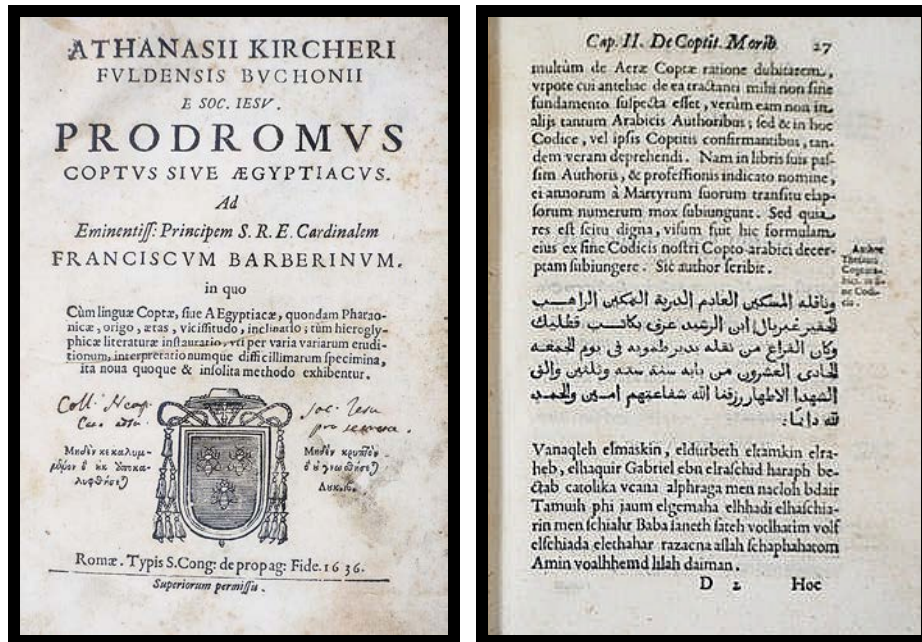 ATHANASII KIRCHERI
FVLDENSIS BVCHONII
E SOC. IESV.
PRODROMVS
COPTVS SIVE ÆGYPTIACVS.
Ad
Eminentiss: Principem S. R. E. Cardinalem
FRANCISCVM BARBERINVM.
in quo
Cùm linguæ Coptæ, siue AEgyptiacæ, quondam Pharao-
nicæ, origo, ætas, vicissitudo, inclinatio; tùm hierogly-
phicæ literaturæ instauratio, vti per varia variarum erudi-
tionum, interpretationumque difficillimarum specimina,
ita noua quoque & insolita methodo exhibentur.
Coll. Neap.
Soc. Iesu
Μηδὲν κεκαλυμ-
Μηδὲν κρυπτὸν
Romæ. Typis S. Cong: de propag: Fide. 1636.
Superiorum permissu.
Cap. II. De Coptit. Morib. 27
multùm de Aeræ Coptæ ratione dubitarem,
vtpote cui antehac de ea tractanti mihi non sine
fundamento suspecta esset, verùm eam non in
alijs tantum Arabicis Authoribus; sed & in hoc
Codice, vel ipsis Coptitis confirmantibus, tan-
dem veram deprehendi. Nam in libris suis pas-
sim Authoris, & professionis indicato nomine,
ei annorum à Martyrum suorum transitu elap-
sorum numerum mox subiungunt. Sed quia
res est scitu digna, visum fuit hic formulam
eius ex fine Codicis nostri Copto-arabici decer-
ptam subiungere. Sic author scribit.
وناقله المسكين العادم الدربة المكين الراهب
الحقير غبريال ابن الرشيد عرف بكاتب قطليك
وكان الفراغ من نقله بدير طمويه فى يوم الجمعه
الحادى العشرون من بابه سنة سته وثلثين والف
الشهدا الاطهار رزقنا الله شفاعتهم امين والحمد
لله دايما:
Vanaqleh elmaskin, eldürbeth elcamkin elra-
heb, elhaquir Gabriel ebn elraschid haraph be-
ctab catolika vcana alphraga men nacloh bdair
Tamuih phi jaum elgemaha elhhadi elhaschia-
rin men schiahr Baba saneth sateh voelhatim volf
elschiada elethahar razacna allah schaphahatom
Amin voalhhemd lilah daiman.
D 2 Hoc